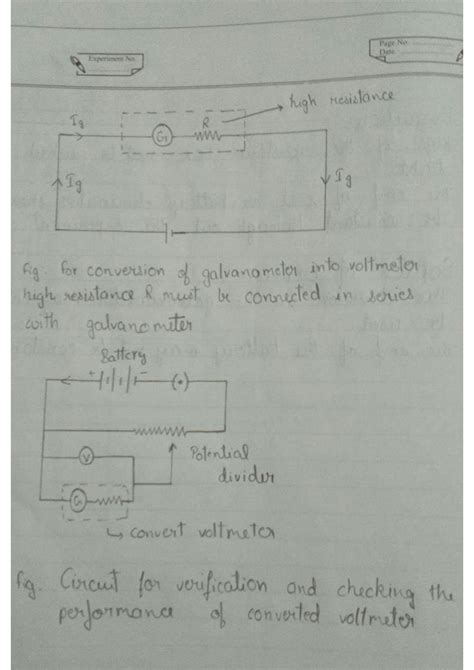 Page No.
Date
Experiment No.
high resistance
Ig
R
G
Ig
Ig
fig. for conversion of galvanometer into voltmeter
high resistance R must be connected in series
with galvanometer
Battery
+ -
(•)
V
Potential
divider
G
convert voltmeter
fig. Circuit for verification and checking the
performance of converted voltmeter